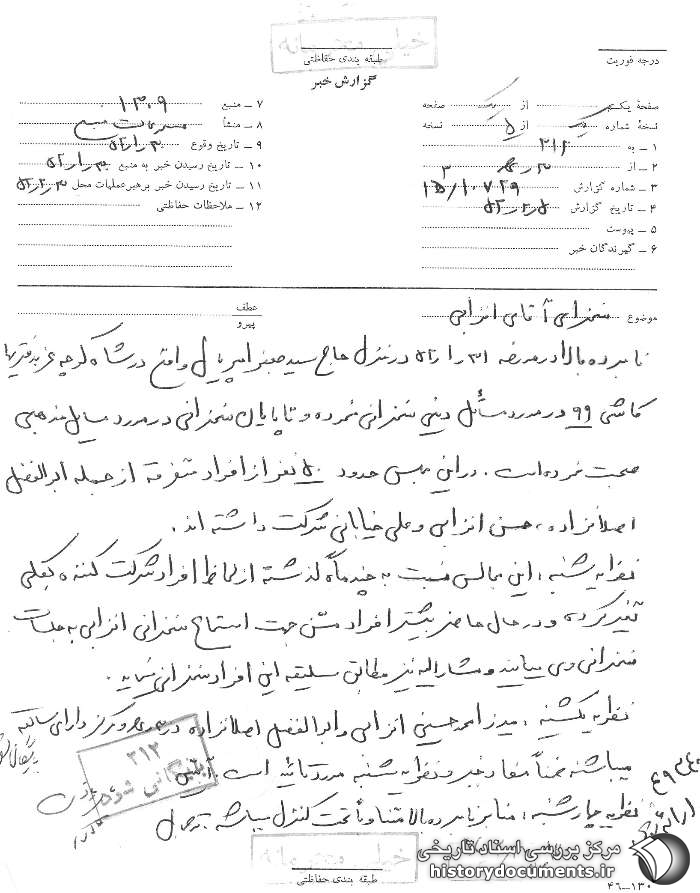 خیلی محرمانه
طبقه بندی حفاظتی
درجه فوریت
گزارش خبر
صفحه یکم از یک صفحه
نسخه شماره یک از ۵ نسخه
۱ ـ به ۳۱۲
۲ ـ از
۳ ـ شماره گزارش ۱۵/۱۰۷۲۹
۴ ـ تاریخ گزارش
۵ ـ پیوست
۶ ـ گیرندگان خبر
۷ ـ منبع ۱۳۰۹
۸ ـ منشأ منبع
۹ ـ تاریخ وقوع
۱۰ ـ تاریخ رسیدن خبر به منبع
۱۱ ـ تاریخ رسیدن خبر برهبر عملیات محل
۱۲ ـ ملاحظات حفاظتی
موضوع سخنرانی آقای انزابی
عطف
پیرو
نامبرده بالا در مورخه در منزل حاج سید جعفر واقع در شاه کوچه
کاشی ۹۹ در مورد مسائل دینی سخنرانی نموده و تا پایان سخنرانی در مورد مسایل مذهبی
صحبت نموده است. در این مجلس حدود ۵۰ نفر از افراد متفرقه از جمله ابوالفضل
اصلانزاده، حسن انزابی و علی خیابانی شرکت داشته اند.
نظریه شنبه، این مجالس نسبت به چند ماه گذشته از لحاظ افراد شرکت کننده بکلی
تغییر کرده و در حال حاضر بیشتر افراد مسن جهت استماع سخنرانی انزابی به جلسات
سخنرانی وی میایند و مشارالیه نیز مطابق سلیقه این افراد سخنرانی مینماید.
نظریه یکشنبه، میرزا محمد حسین انزابی و ابوالفضل اصلانزاده در و مرکز دارای سابقه
میباشند ضمناً مفاد خبر و نظریه شنبه مورد تائید است.
نظریه چهارشنبه، منابر نامبرده بالا متناوباً تحت کنترل میباشد
۳۱۲
بایگانی شود
خیلی محرمانه
طبقه بندی حفاظتی
مرکز بررسی اسناد تاریخی
historydocuments.ir